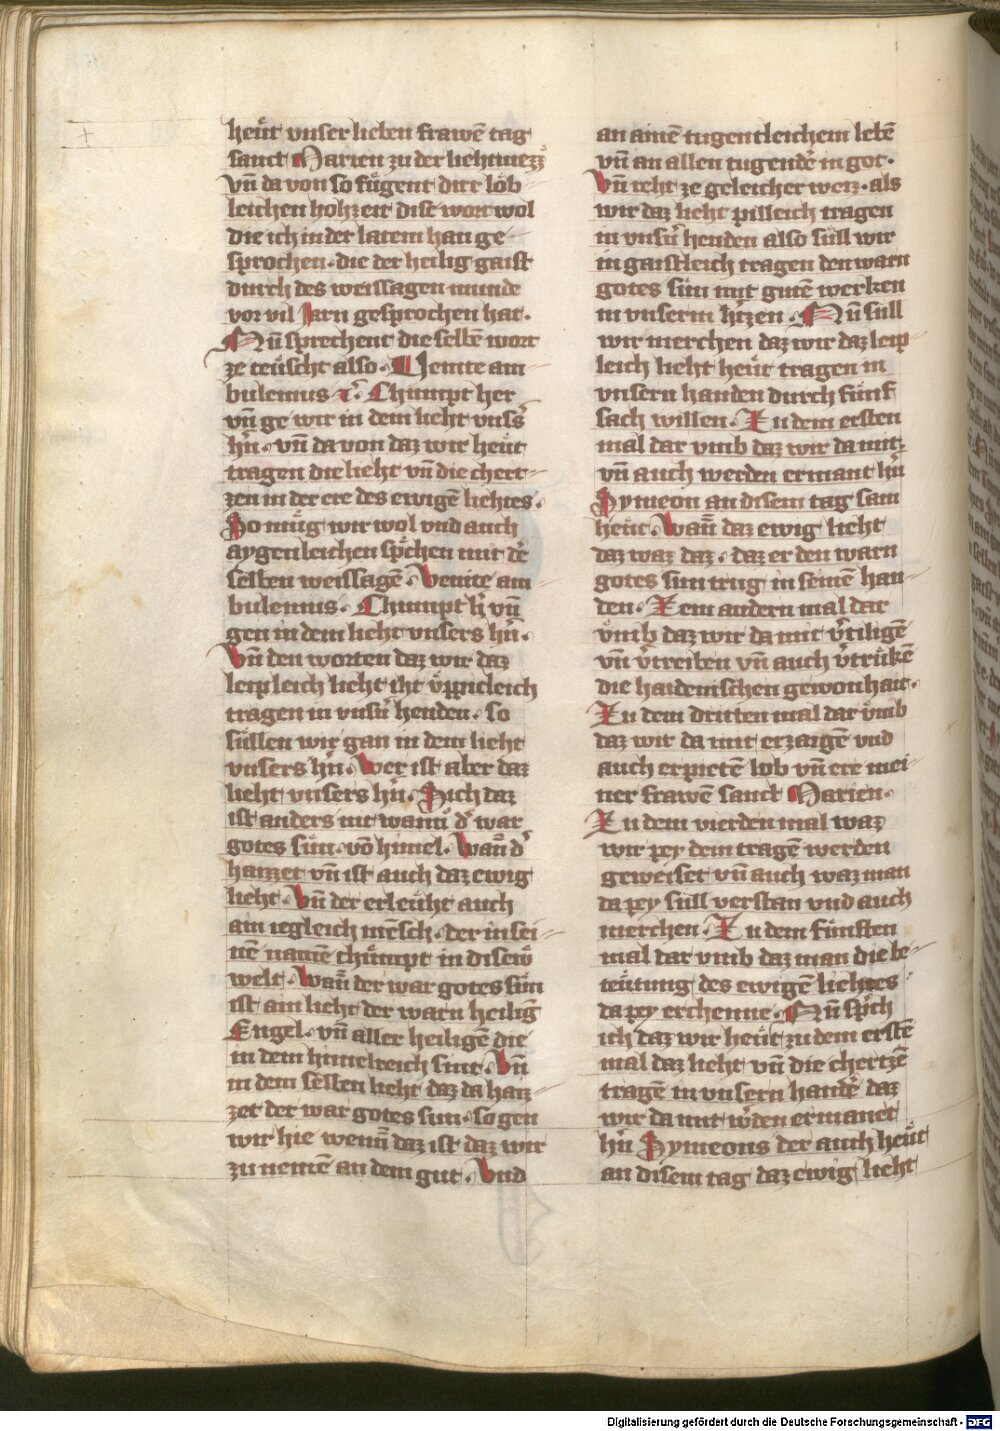 heẅt vnser lieben frawē tag
sanct Marien zu der liehtmezz
vn̄ da von so fügent dirr löb-
leichen hohzeit dise wort wol
die ich in der latein han ge-
sprochen · die der heilig gaist
durch des weissagen munde
vor vil Jarn gesprochen hat ·
Nū sprechent die selbē wort
ze teüscht also · Venite am-
bulemus ꝛc̄ · Chumpt her
vn̄ ge wir in dem lieht vnsʼs
hʼn · vn̄ da von daz wir heẅt
tragen die lieht vn̄ die chert-
zen in der ere des ewigē liehtes ·
So müg wir wol vnd auch
aygenleichen spʼchen mit dē
selben weissagē · Venite am-
bulemus · Chumpt hʼ vn̄
gen in dem lieht vnsers hʼn ·
Vn̄ den worten daz wir daz
leipleich lieht iht v̈ppicleich
tragen in vnsʼn henden · so
süllen wir gan in dem lieht
vnsers hʼn · Wer ist aber daz
lieht vnsers hʼn · Sich daz
ist anders nit wann dʼ war
gotes sün · vō himel · Wan̄ dʼ
haizzet vn̄ ist auch daz ewig
lieht · Vn̄ der erleüht auch
ain iegleich mēsch · der in sei-
nē namē chümpt in disew
welt · Wan̄ der war gotes sün
ist ain lieht der warn heilig
Engel · vn̄ aller heiligē die
in dem himelreich sint · Vn̄
in dem selben lieht daz da haiz-
zet der war gotes sun · so gen
wir hie wenn̄ daz ist daz wir
zu nemē an dem gut · Vnd
an ainē tugentleichem lebē
vn̄ an allen tugendē in got ·
Vn̄ reht ze geleicher weiz · als
wir daz lieht pilleich tragen
in vnsʼn henden also süll wir
in gaistleich tragen den warn
gotes sun mit gutē werken
in vnserm hʼtzen · Nū süll
wir merchen daz wir daz leip-
leich lieht heẅt tragen in
vnsern handen durch fünf
sach willen · Zu dem ersten
mal dar vmb daz wir da mit
vn̄ auch werden ermant hʼn
Symeon an disem tag sam
heẅt · Wan̄ daz ewig lieht
daz waz daz · daz er den warn
gotes sun trug in seinē han-
den · Zem andern mal dar
v̈mb daz wir da mit vʼtiligē
vn̄ vʼtreiben vn̄ auch vʼtrükē
die haidenischen gewonhait ·
Zu dem dritten mal dar v̈mb
daz wir da mit erzaigē vnd
auch erpietē lob vn̄ ere mei-
ner frawē sanct Marien ·
Zu dem vierden mal waz
wir pey dem tragē werden
geweiset vn̄ auch waz man
da pey süll verstan vnd auch
merchen · Zu dem fünften
mal dar vmb daz man die be-
teütung des ewigē liehtes
da pey erchenne · Nū spʼch
ich daz wir heẅt zu dem erstē
mal daz lieht vn̄ die chertzē
tragē in vnsern handē daz
wir da mit wʼden ermanet
hʼn Symeons der auch heẅt
an disem tag daz ewig lieht
Digitalisierung gefördert durch die Deutsche Forschungsgemeinschaft - DFG